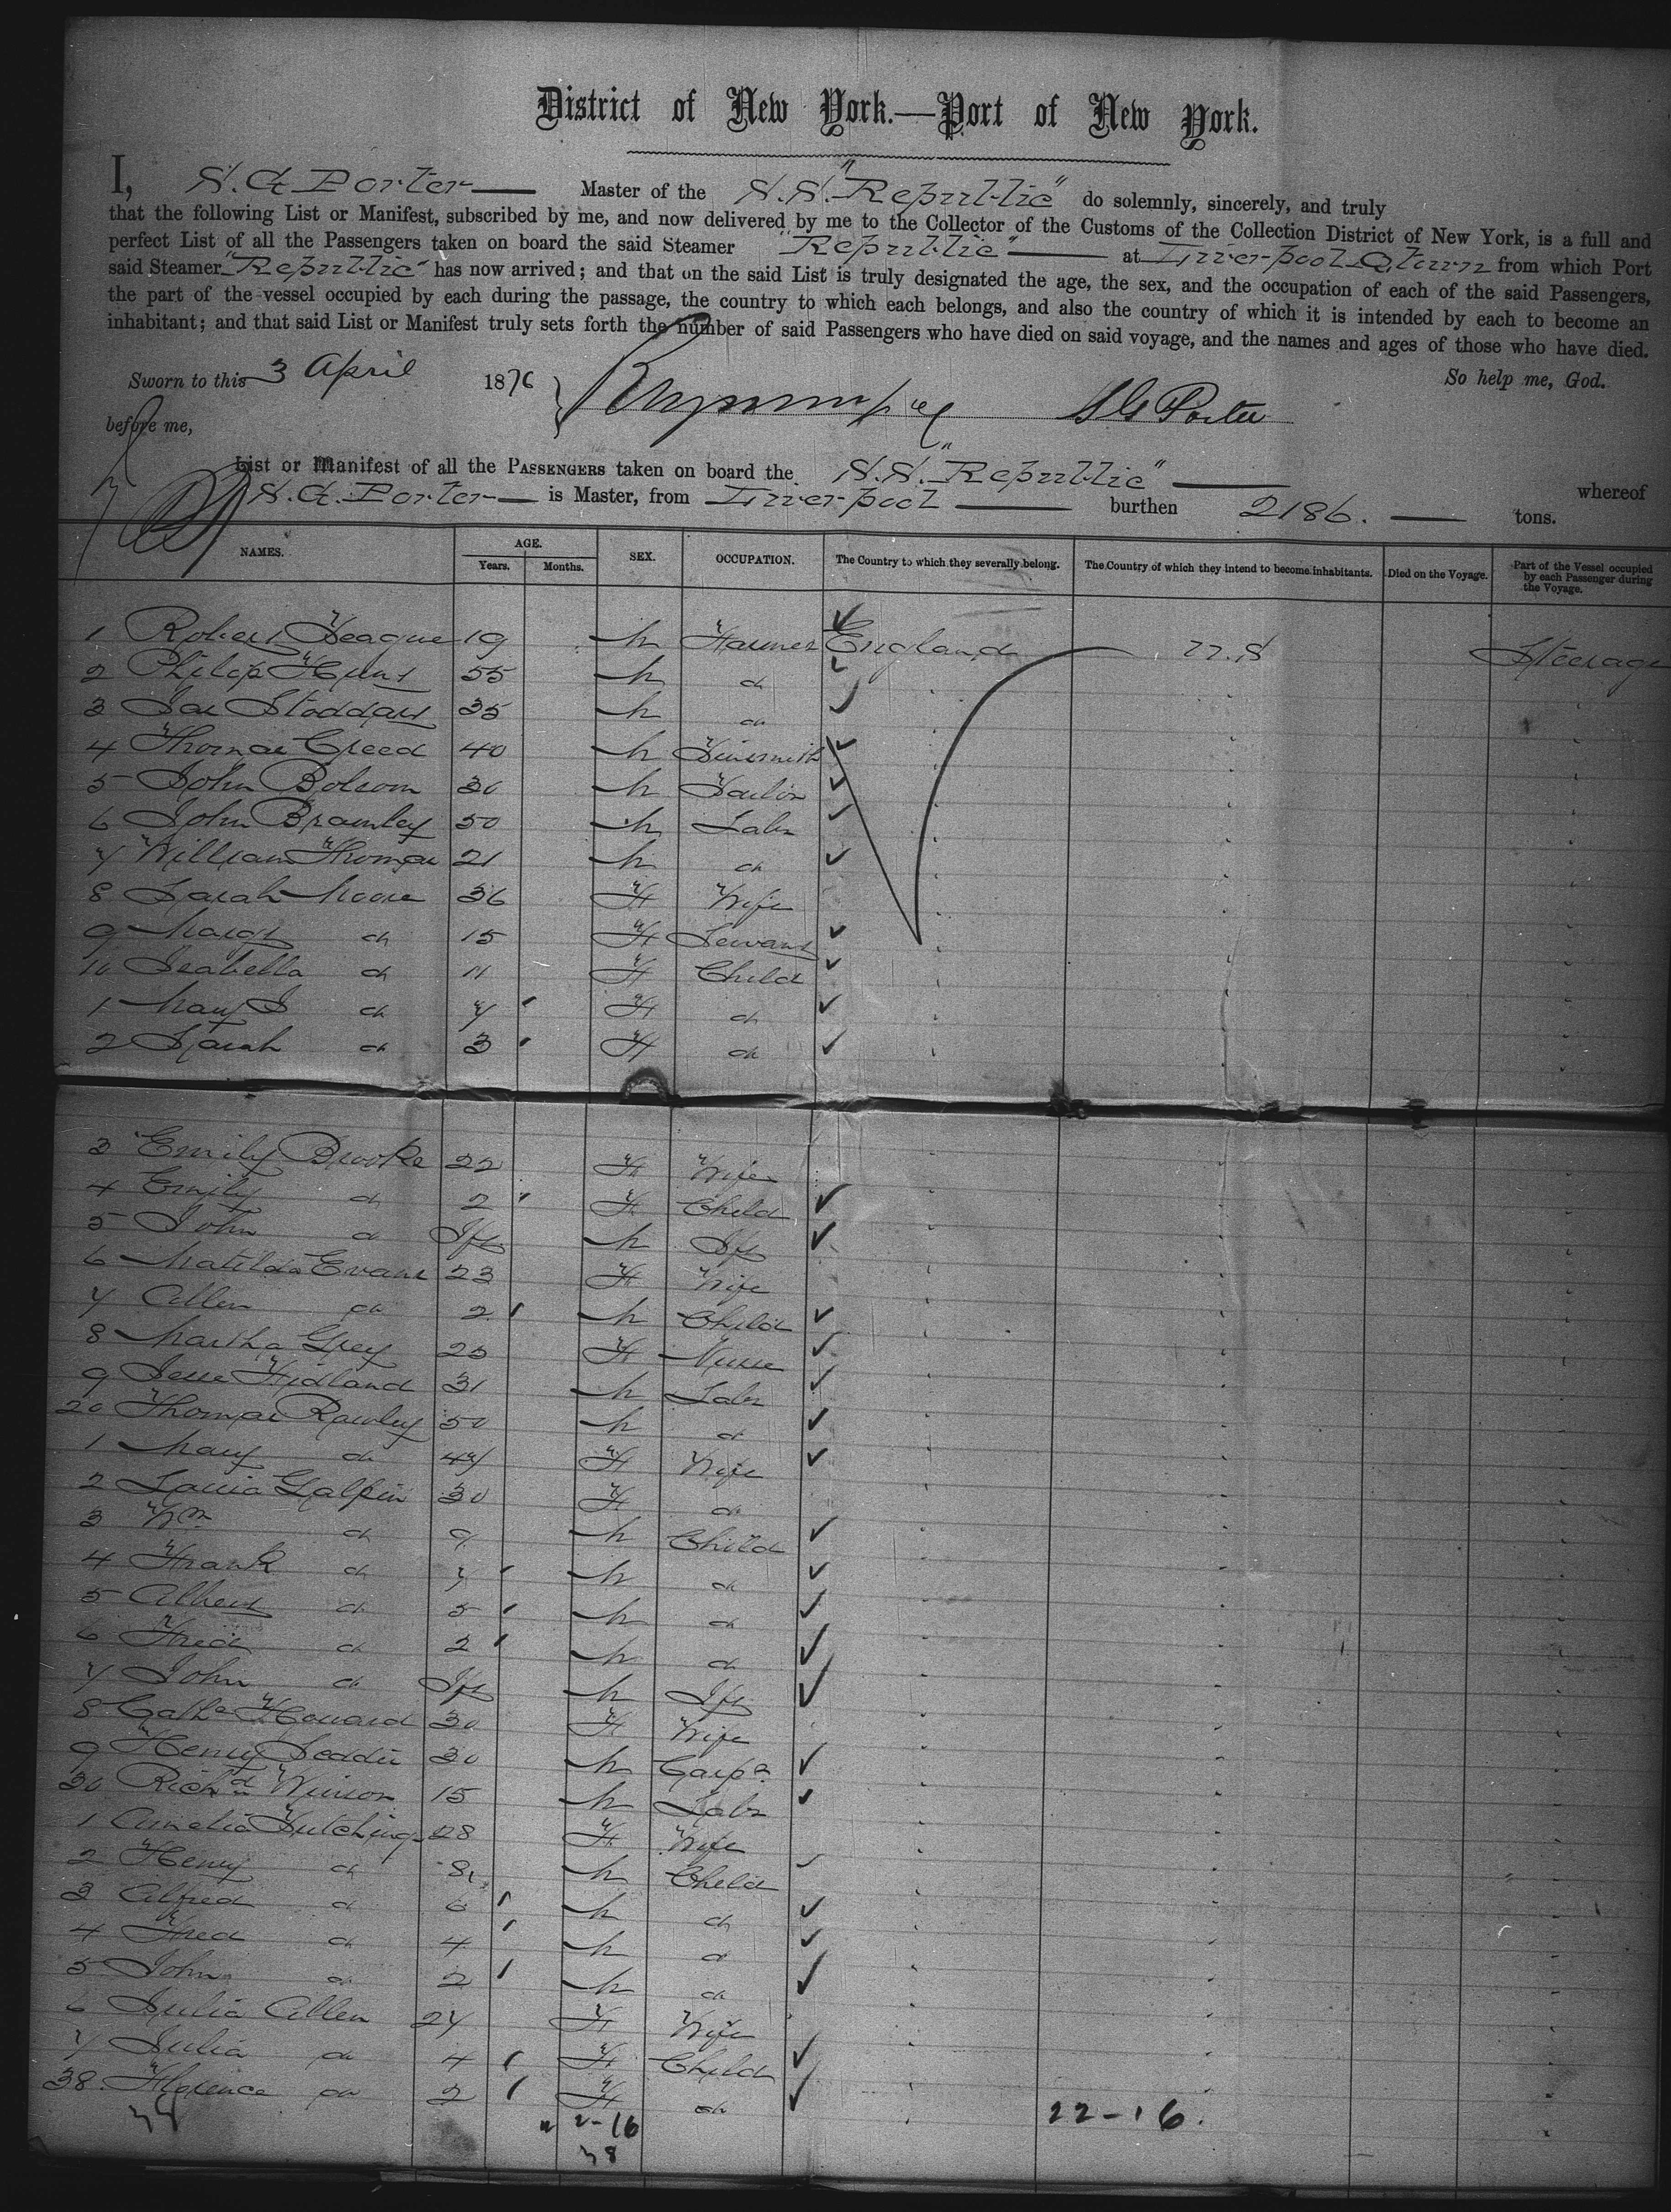 District of New York.—Port of New York.
I, S. G Porter Master of the S.S. "Republic" do solemnly, sincerely, and truly
that the following List or Manifest, subscribed by me, and now delivered by me to the Collector of the Customs of the Collection District of New York, is a full and
perfect List of all the Passengers taken on board the said Steamer "Republic" at Liverpool Qtown from which Port
said Steamer "Republic" has now arrived; and that on the said List is truly designated the age, the sex, and the occupation of each of the said Passengers,
the part of the vessel occupied by each during the passage, the country to which each belongs, and also the country of which it is intended by each to become an
inhabitant; and that said List or Manifest truly sets forth the number of said Passengers who have died on said voyage, and the names and ages of those who have died.
So help me, God.
Sworn to this 3 April 1876
before me, S G Porter
List or Manifest of all the PASSENGERS taken on board the S.S. "Republic" whereof
S. G. Porter is Master, from Liverpool burthen 2186. tons.
NAMES. AGE. Years. Months. SEX. OCCUPATION. The Country to which they severally belong. The Country of which they intend to become inhabitants. Died on the Voyage. Part of the Vessel occupied by each Passenger during the Voyage.
1 Robert Teague 19 M Farmer England U.S Steerage
2 Philip Hunt 55 M do
3 Jas Stoddart 35 M do
4 Thomas Creed 40 M Tinsmith
5 John Bolsom 30 M Tailor
6 John Bramley 50 M Labr
7 William Thomas 21 M do
8 Sarah Moore 36 F Wife
9 Margt do 15 F Servant
10 Isabella do 11 F Child
1 Mary J do 7 F do
2 Sarah do 3 F do
3 Emily Brooke 22 F Wife
4 Emily do 2 F Child
5 John do Inft M Inft
6 Matilda Evans 23 F Wife
7 Allen do 2 M Child
8 Martha Grey 25 F Nurse
9 Jesse Hidland 31 M Labr
20 Thomas Rawley 50 M do
1 Mary do 47 F Wife
2 Louisa Galpin 30 F do
3 Wm do 9 M Child
4 Frank do 7 M do
5 Albert do 5 M do
6 Fred do 2 M do
7 John do Inft M Inft
8 Cathe Howard 30 F Wife
9 Henry Seddii 30 M Carpr
30 Richd Winson 15 M Labr
1 Amelia Hutchings 28 F Wife
2 Henry do 8 M Child
3 Alfred do 6 M do
4 Fred do 4 M do
5 John do 2 M do
6 Julia Allen 27 F Wife
7 Julia do 4 F Child
38. Florence do 2 F do
38 22-16 22-16.
38